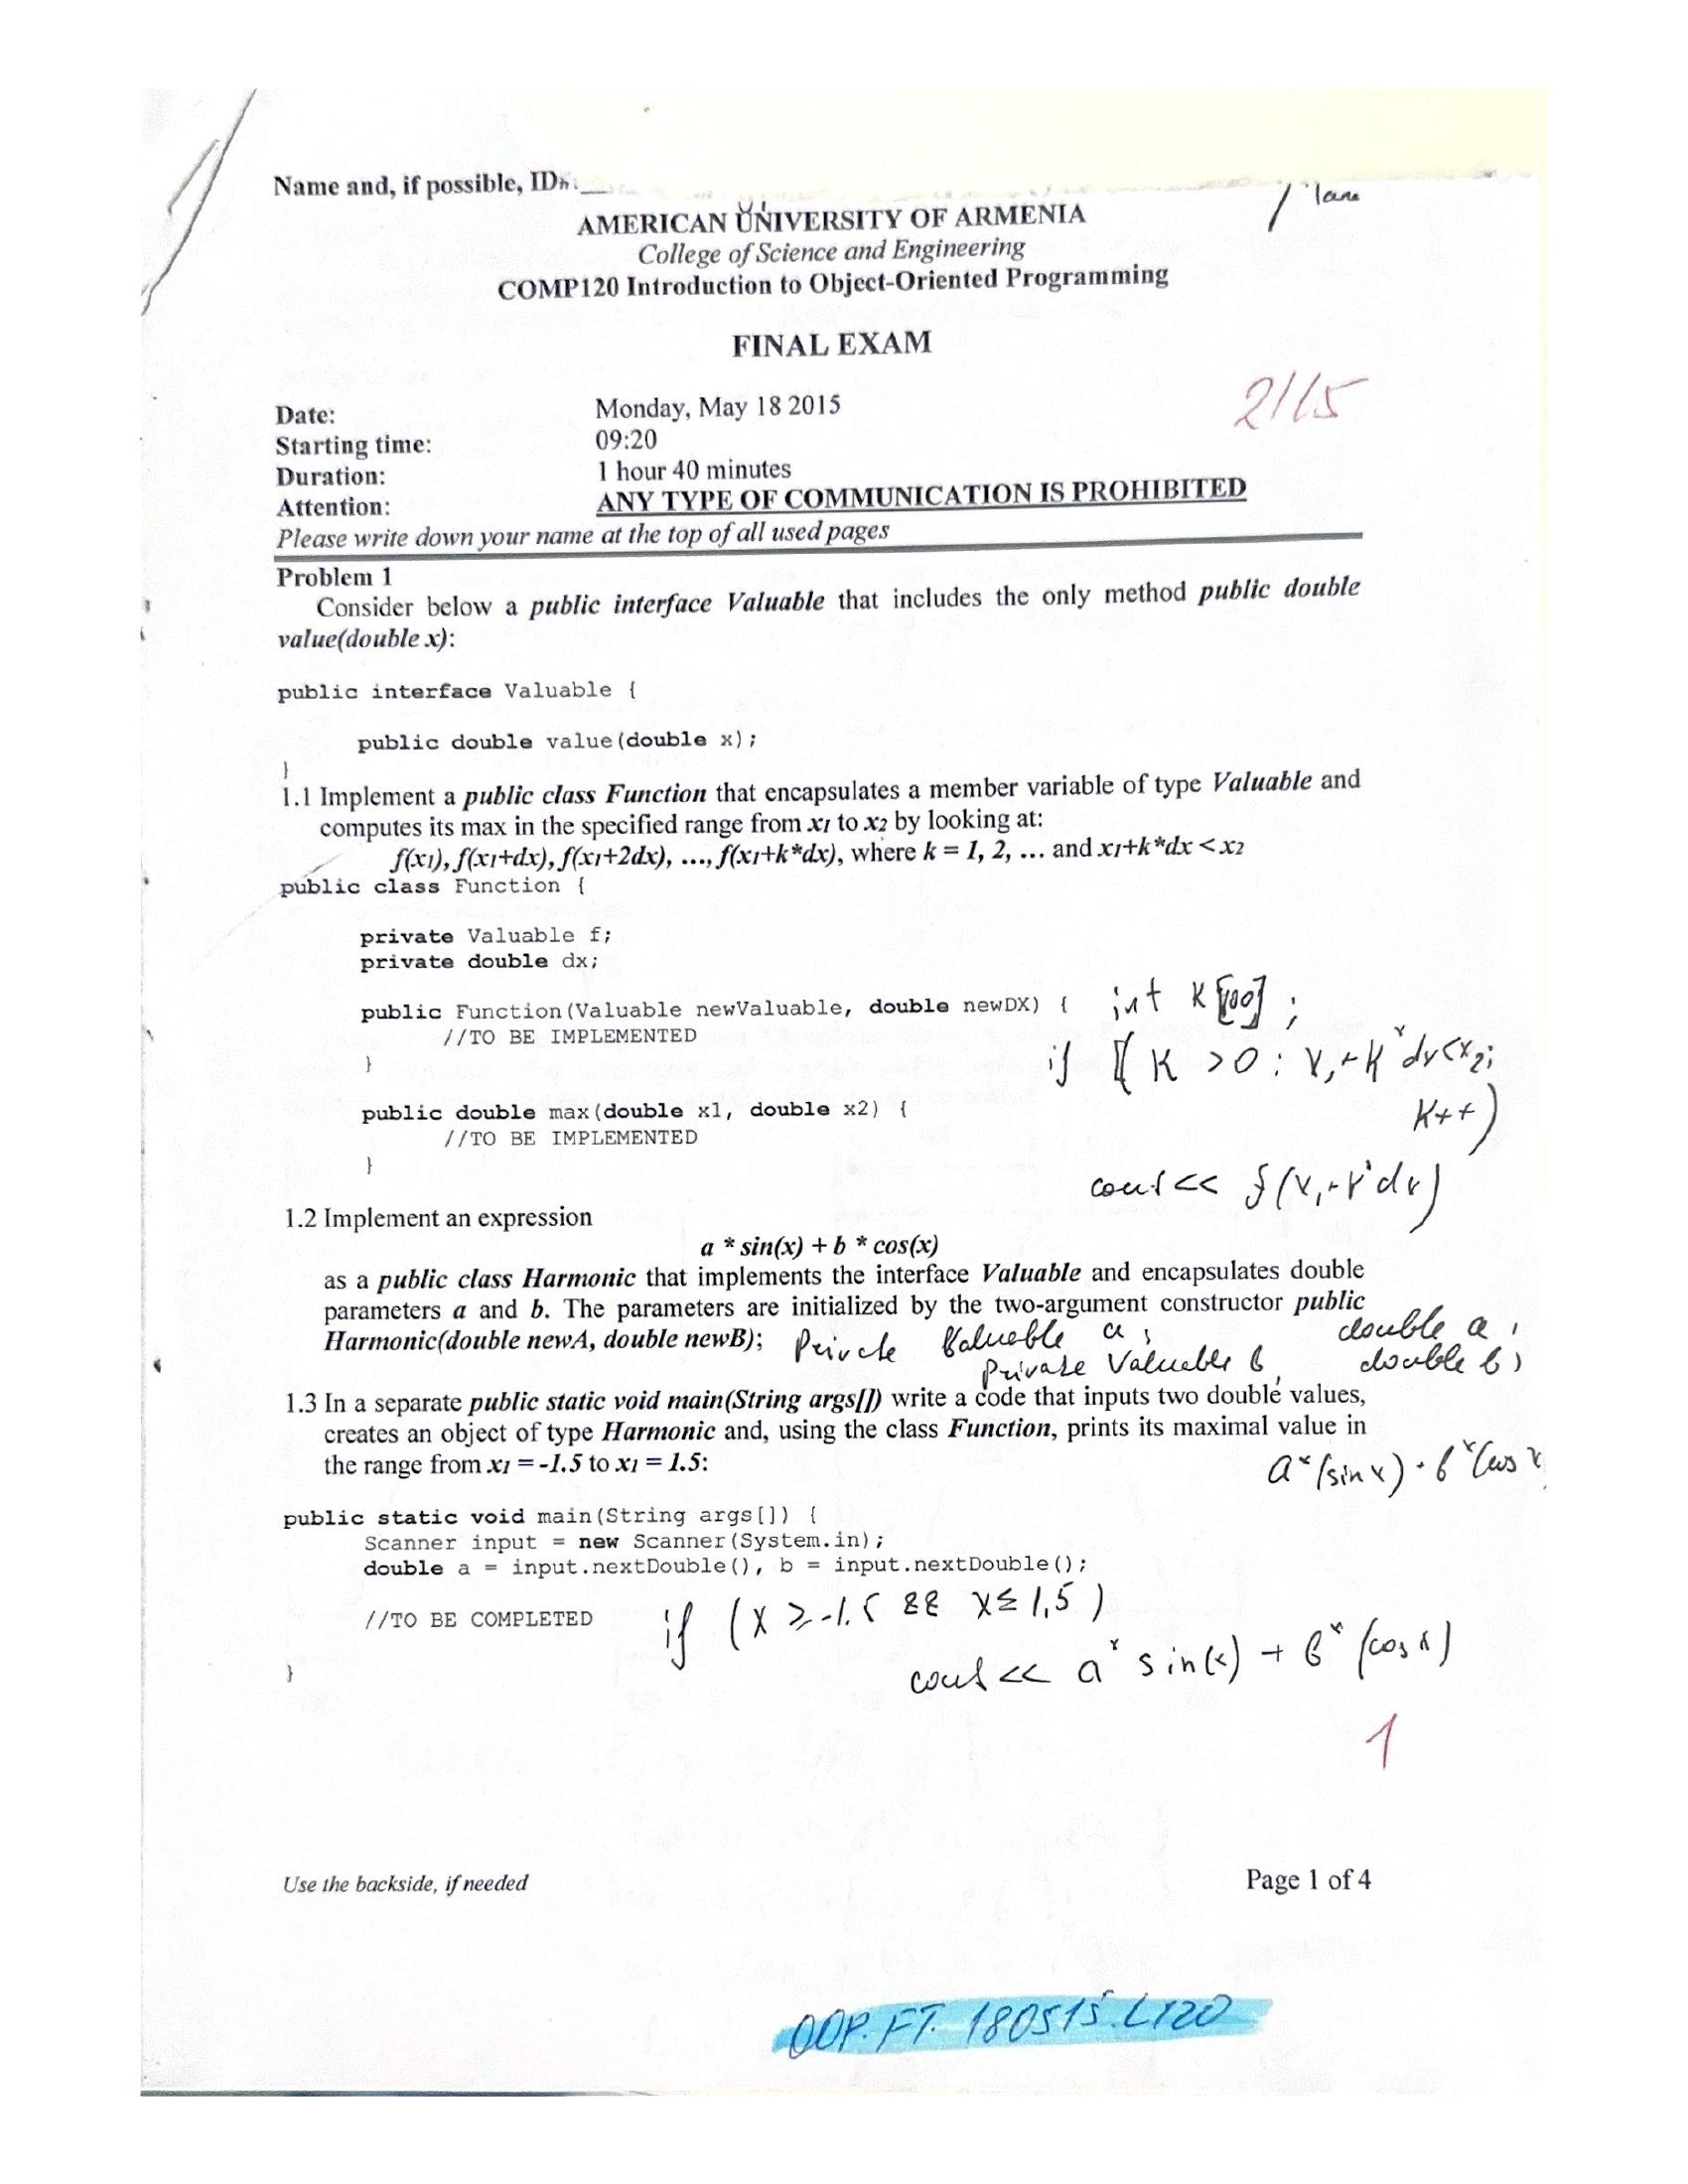 Name and, if possible, ID
AMERICAN UNIVERSITY OF ARMENIA
College of Science and Engineering
COMP120 Introduction to Object-Oriented Programming
FINAL EXAM
2115
Date: Monday, May 18 2015
Starting time: 09:20
Duration: 1 hour 40 minutes
Attention: ANY TYPE OF COMMUNICATION IS PROHIBITED
Please write down your name at the top of all used pages
Problem 1
Consider below a public interface Valuable that includes the only method public double
value(double x):
public interface Valuable {
public double value(double x);
}
1.1 Implement a public class Function that encapsulates a member variable of type Valuable and
computes its max in the specified range from x1 to x2 by looking at:
f(x1), f(x1+dx), f(x1+2dx), ..., f(x1+k*dx), where k = 1, 2, ... and x1+k*dx < x2
public class Function {
private Valuable f;
private double dx;
public Function(Valuable newValuable, double newDX) { int K[100];
//TO BE IMPLEMENTED
} if ( K > 0 : x1+K*dx<x2;
public double max(double x1, double x2) { K++)
//TO BE IMPLEMENTED
}
cout << f(x1+k*dx)
1.2 Implement an expression
a * sin(x) + b * cos(x)
as a public class Harmonic that implements the interface Valuable and encapsulates double
parameters a and b. The parameters are initialized by the two-argument constructor public
Harmonic(double newA, double newB); Private Valuable a; double a;
Private Valuable b, double b;
1.3 In a separate public static void main(String args[]) write a code that inputs two double values,
creates an object of type Harmonic and, using the class Function, prints its maximal value in
the range from x1 = -1.5 to x1 = 1.5:
a*(sin x) + b*(cos x
public static void main(String args[]) {
Scanner input = new Scanner(System.in);
double a = input.nextDouble(), b = input.nextDouble();
//TO BE COMPLETED if (x ≥ -1.5 && x ≤ 1,5)
cout << a* sin(x) + b* (cos x)
}
1
Use the backside, if needed Page 1 of 4
OOP.FT. 180515.L120